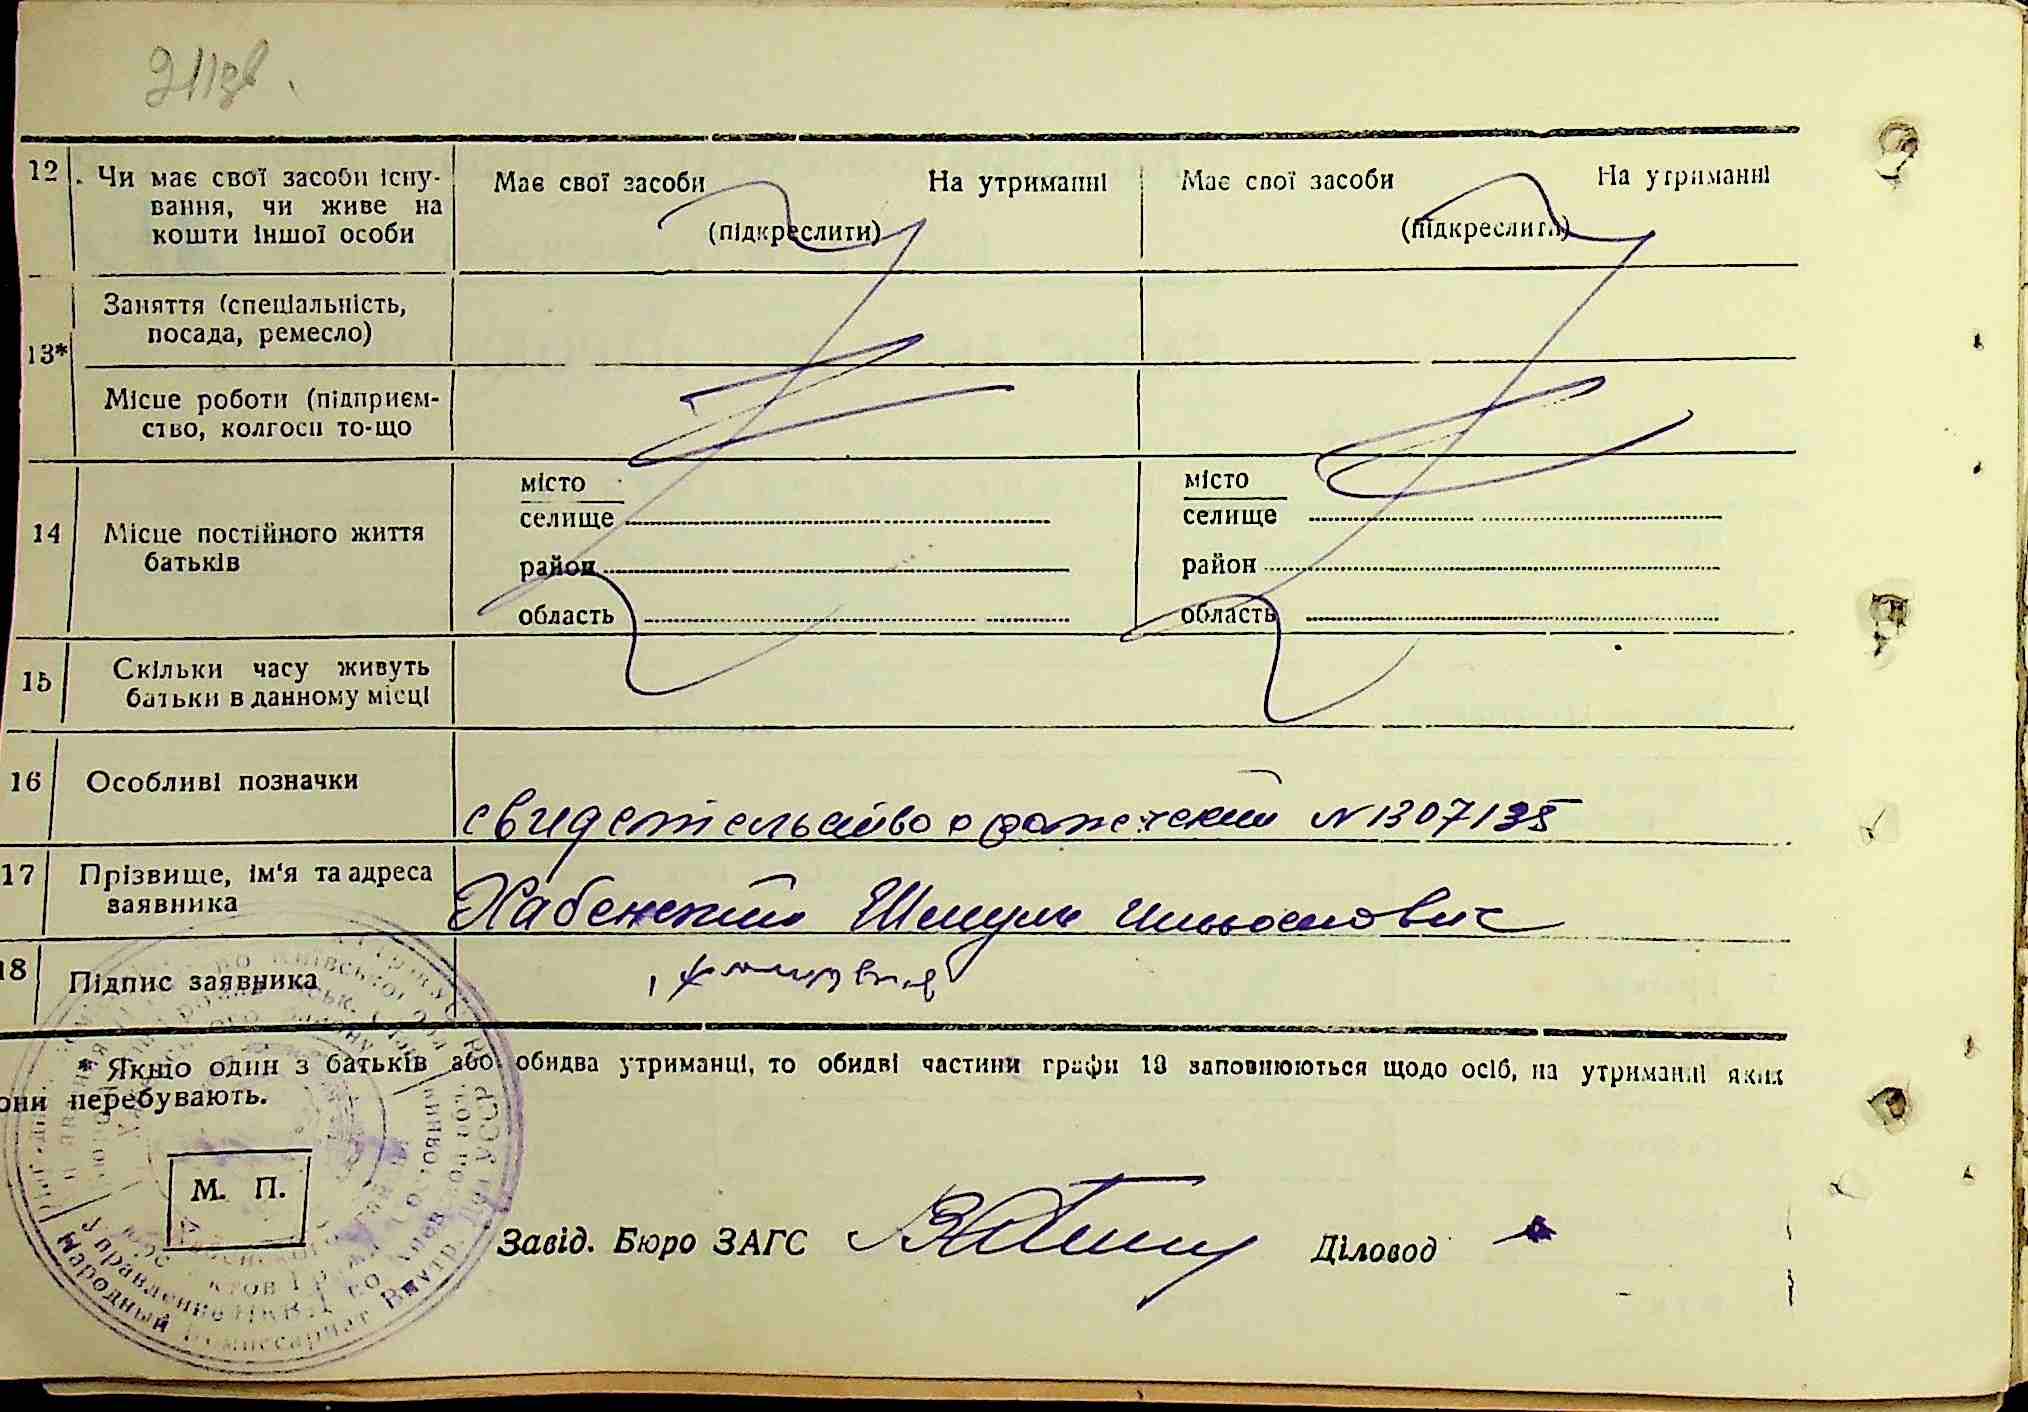 211зв.
12 Чи має свої засоби існу- Має свої засоби На утриманні Має свої засоби На утриманні
вання, чи живе на (підкреслити) (підкреслити)
кошти іншої особи
13* Заняття (спеціальність,
посада, ремесло)
Місце роботи (підприєм-
ство, колгосп то-що
14 Місце постійного життя
батьків
місто місто
селище селище
район район
область область
15 Скільки часу живуть
батьки в данному місці
16 Особливі позначки
свидетельство о рождении N 1307135
17 Прізвище, ім'я та адреса
заявника
Хабенский Шмуль
18 Підпис заявника
* Якщо один з батьків або обидва утриманці, то обидві частини графи 13 заповнюються щодо осіб, на утриманні яких
они перебувають.
М. П.
Завід. Бюро ЗАГС Діловод
Народный Комиссариат Внутр. Дел УССР
Управление НКВД по Киев